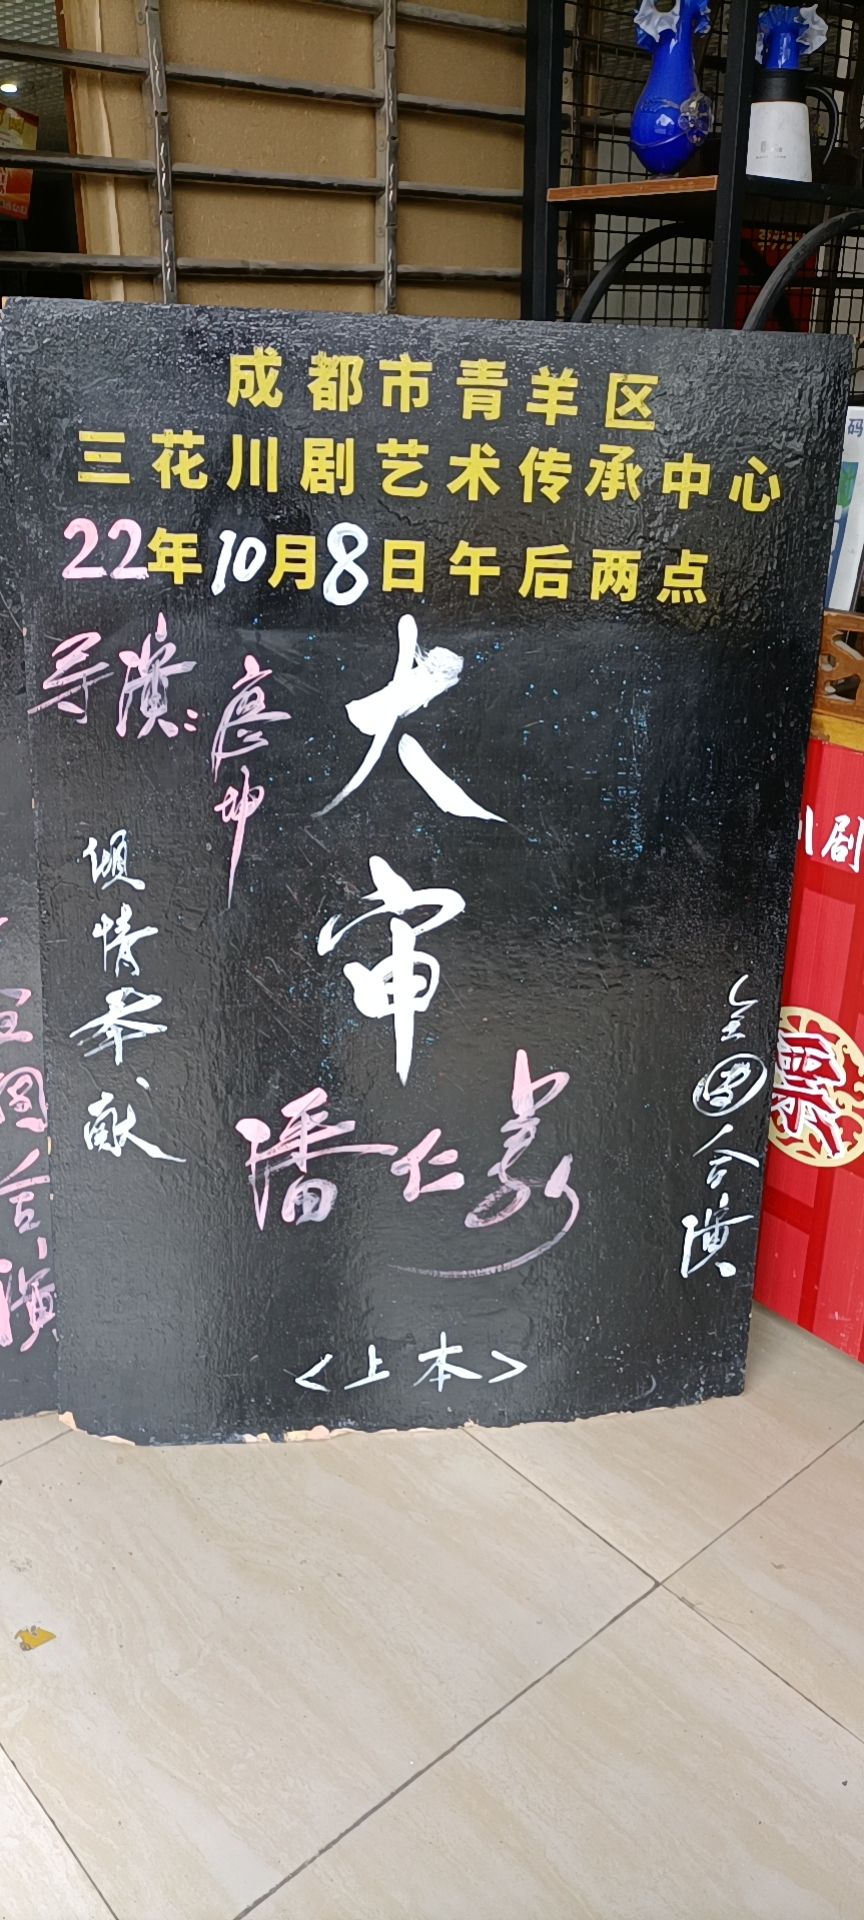 成都市青羊区
三花川剧艺术传承中心
22年10月8日午后两点
导演:
大审
潘仁美
倾情奉献
全团合演
<上本>
川剧
全团合演
码